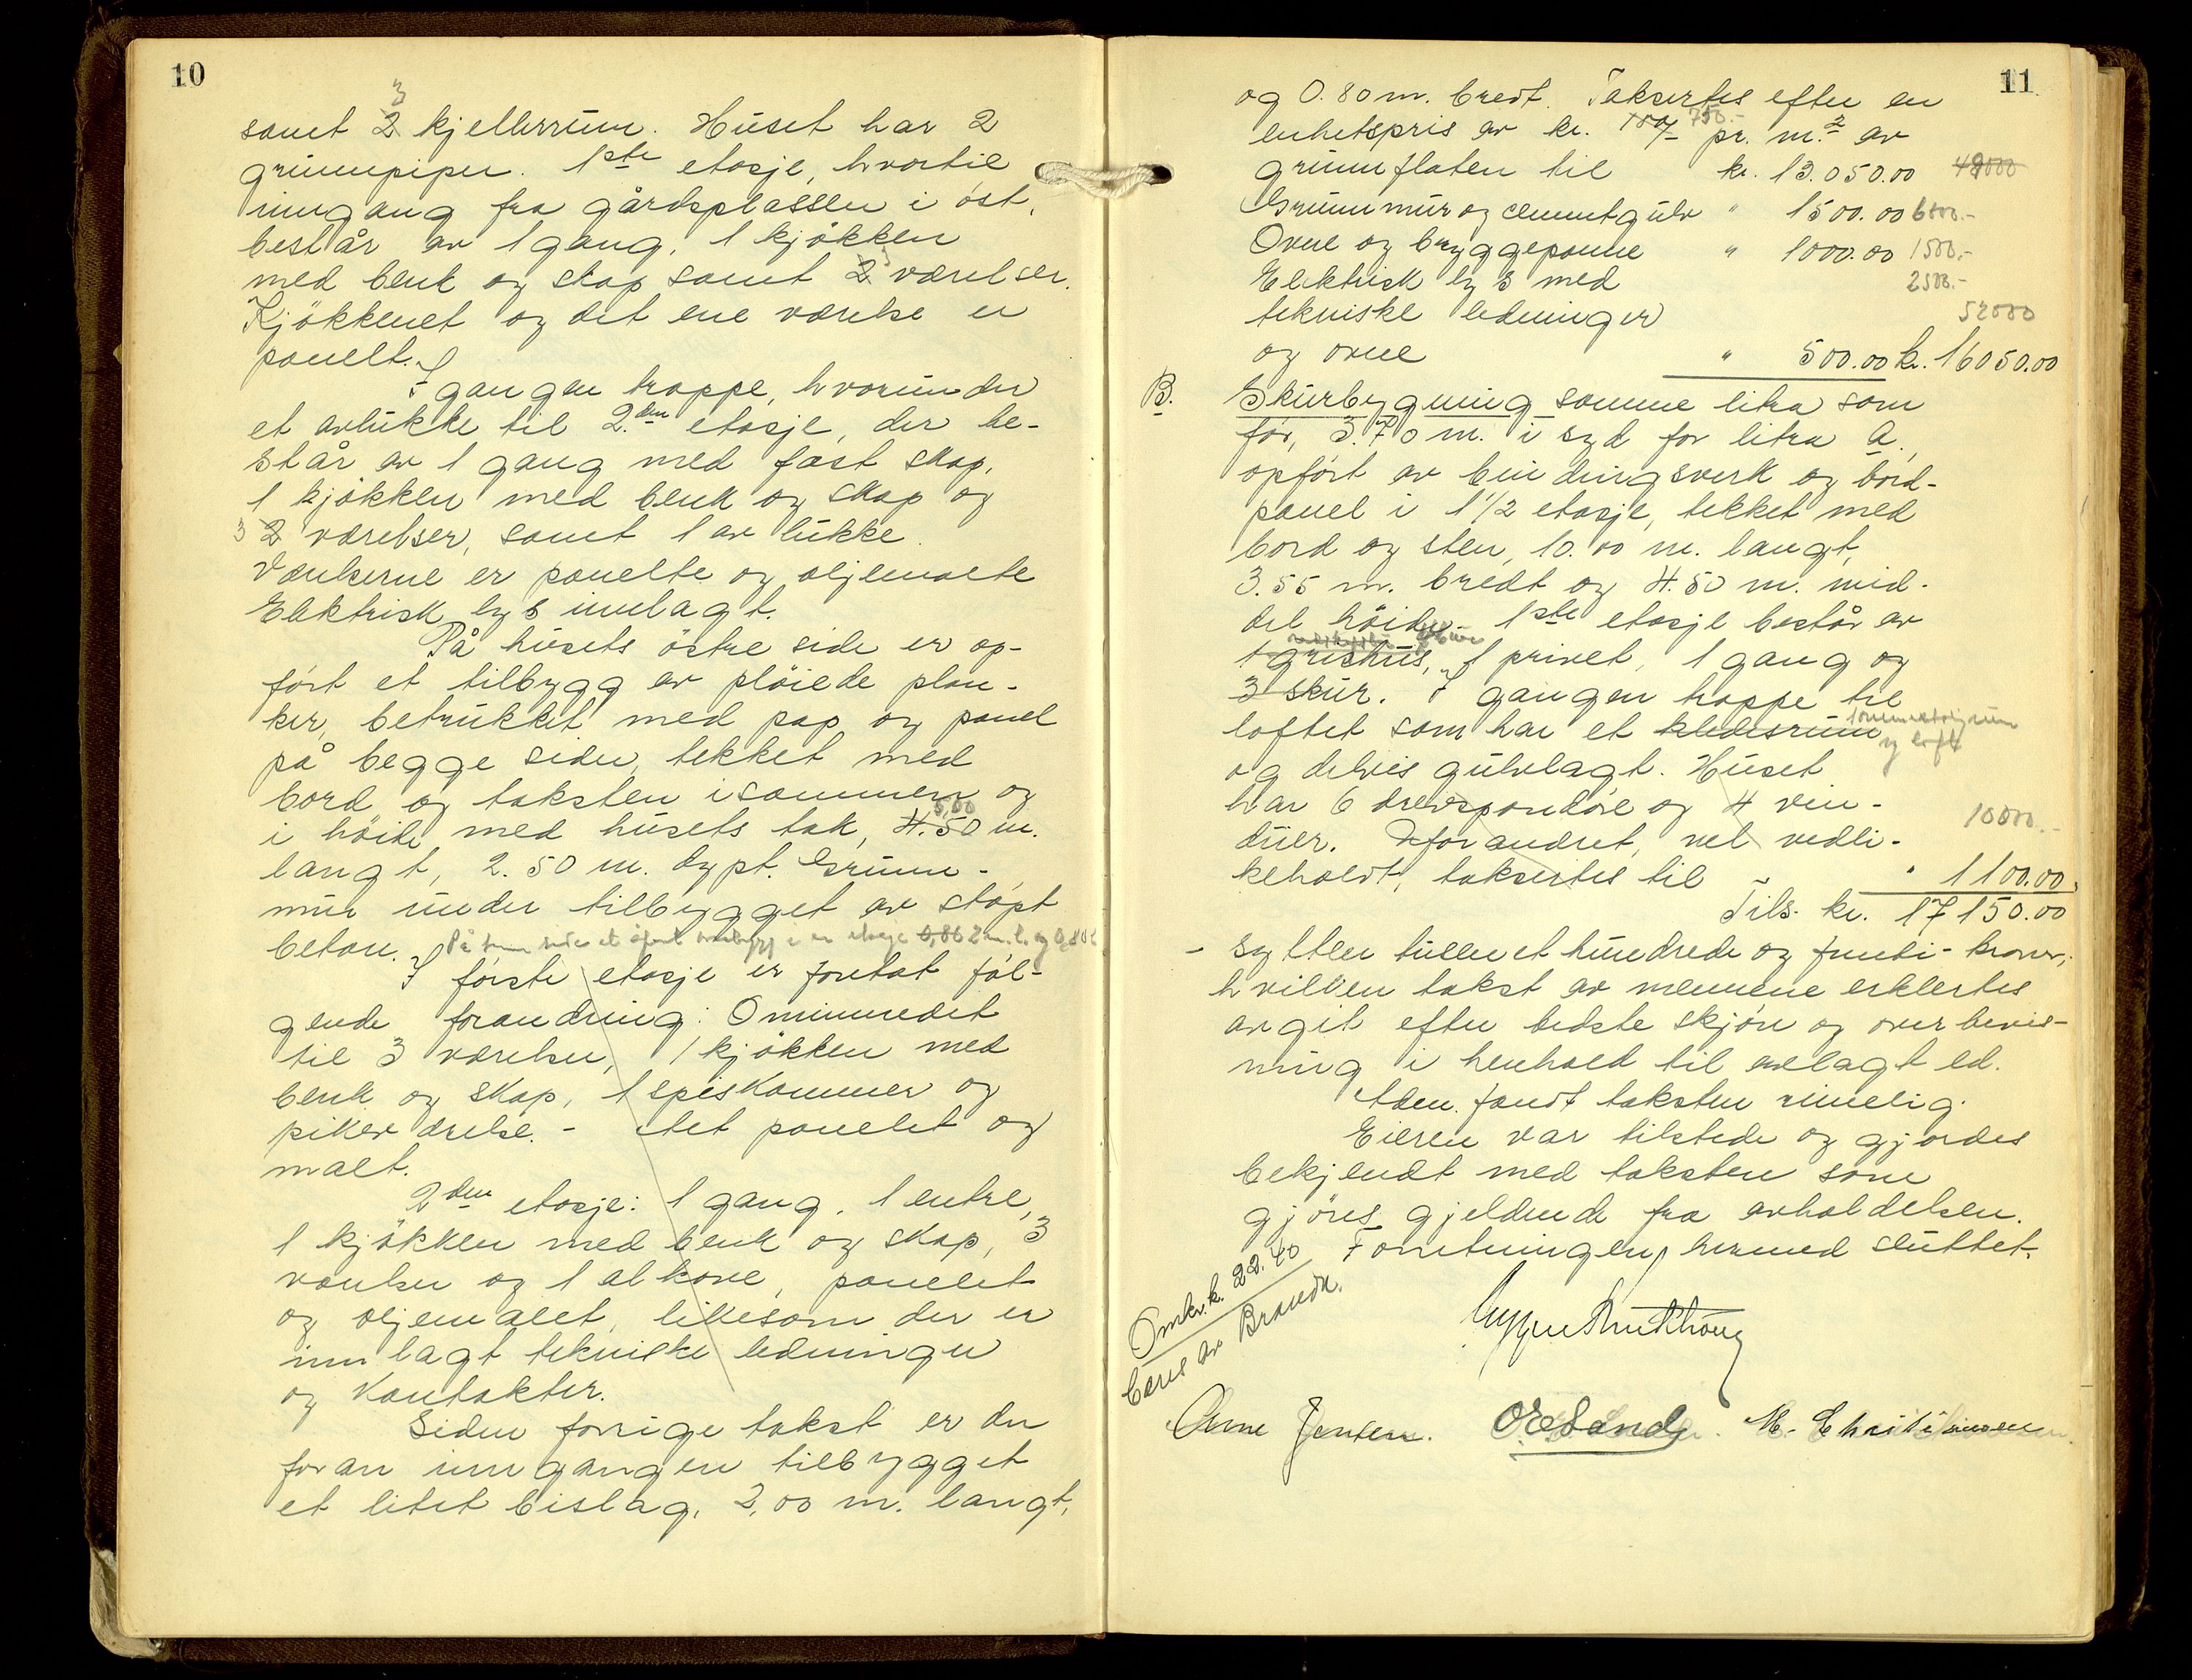 10
3
samt 2 kjellerrum. Huset har 2
grunnpiper. 1ste etasje, hvortil
inngang fra gårdsplassen i øst,
består av 1 gang, 1 kjøkken
med benk og skap samt 2 værelser.
Kjøkkenet og det ene værelse er
panelt.
I gangen trappe, hvorunder
et avlukke til 2.den etasje, der be-
står av 1 gang med fast skap,
1 kjøkken med benk og skap og
3 2 værelser, samt 1 avlukke.
Værelserne er panelte og oljemalte
Elektrisk lys innlagt.
På husets østre side er op-
ført et tilbygg av pløiede plan-
ker, betrukket med pap og panel
på begge sider, tekket med
bord og taksten isammen og
5,00
i høide med husets tak, 4.50 m.
langt, 2.50 m. dypt. Grunn-
mur under tilbygget av støpt
beton. På samme side et åpent overbygg i en etasje 0,86
I første etasje er foretat føl-
gende forandring: Ominnredet
til 3 værelser, 1 kjøkken med
benk og skap, 1 spiskammer og
pikeværelse. - Alt panelet og
malt.
2den etasje: 1 gang, 1 entre,
1 kjøkken med benk og skap, 3
værelser og 1 alkove, panelet
og oljemalet, likesom der er
innlagt tekniske ledninger
og kontakter.
Siden forrige takst er der
foran inngangen tilbygget
et litet bislag, 2,00 m. langt,
11
og 0.80 m. bredt. Taksertes efter en
enhetspris av kr. 180/- 750.- pr. m.2 av
grunnflaten til kr. 13.050.00 48000
Grunnmur og cementgulv " 1500.00 6000.-
Ovne og bryggepanne " 1000.00 1500.-
Elektrisk lys med 2500.-
tekniske ledninger 52000
og ovne " 500.00 kr. 16050.00
B. Skurbygning samme litra som
før, 3.70 m. i syd for litra A.,
opført av bindingsverk og bord-
panel i 1 1/2 etasje, tekket med
bord og sten, 10.00 m. langt,
3.55 m. bredt og 4.50 m. mid-
del høide. 1ste etasje består av
1 grishus, 1 privet, 1 gang og
3 skur. I gangen trappe til
loftet som har et kledesrum
og loft
og delvis gulvlagt. Huset
har 6 drevspondøre og 4 vin-
10000.-
duer. Uforandret, vel vedli-
keholdt, taksertes til " 1100.00
Tils. kr. 17150.00
- sytten tusen et hundrede og femti - kroner,
hvilken takst av mennene erklertes
avgit efter bedste skjøn og overbevis-
ning i henhold til avlagt ed.
Adm. fandt taksten rimelig.
Eieren var tilstede og gjordes
bekjendt med taksten som
gjøres gjeldende fra avholdelsen.
Forretningen hermed sluttet.
Omkr. k. 22.40
bæres av Brandk.
Arne Jensen. O E Sand M. Christiansen